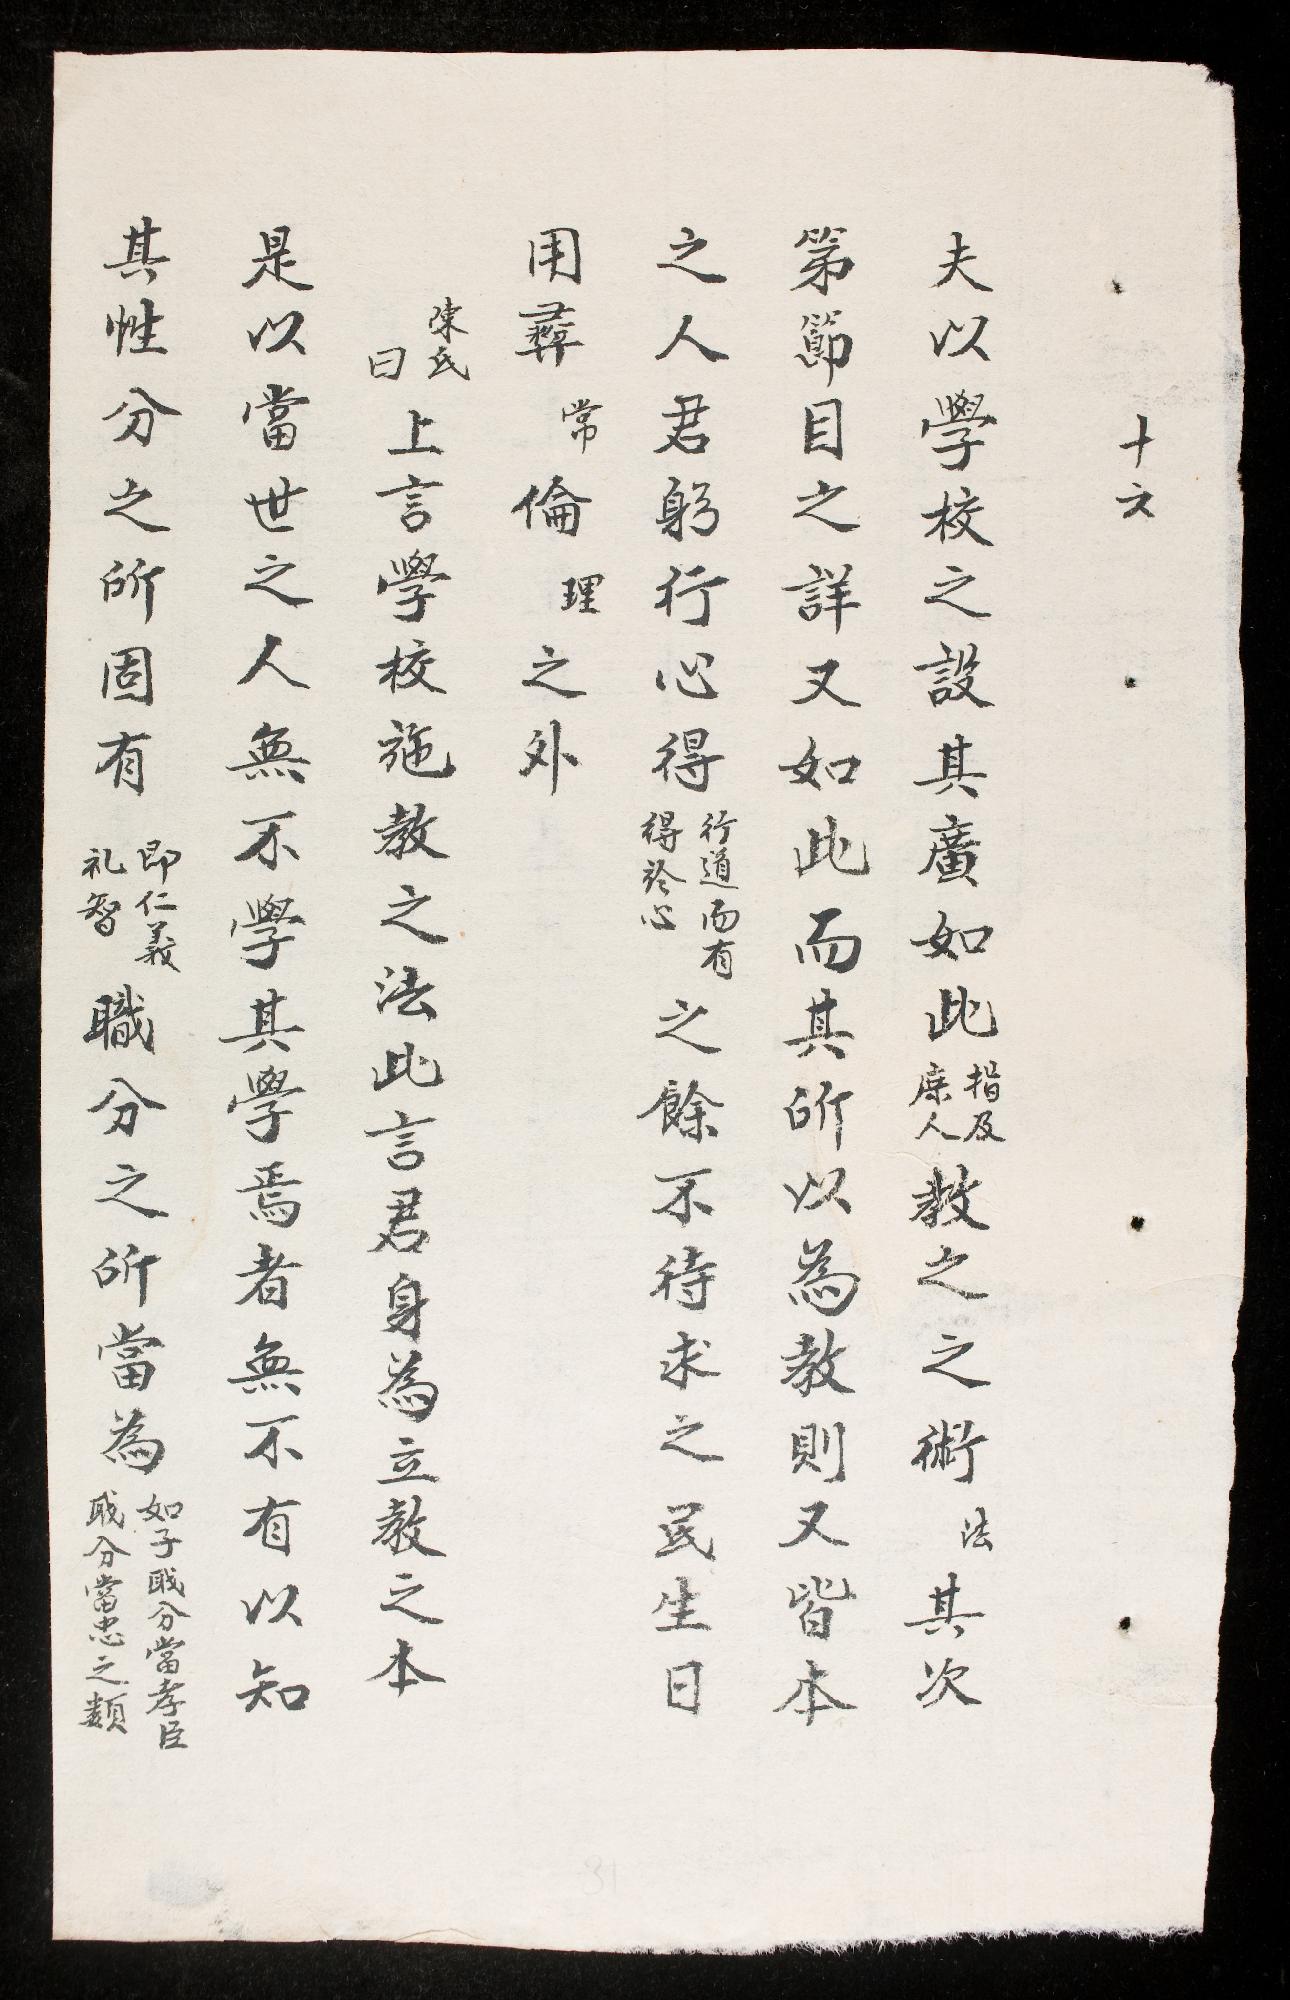 十六
夫以學校之設其廣如此指及庶人教之之術法其次
第節目之詳又如此而其所以為教則又皆本
之人君躬行心得行道而有得於心之餘不待求之民生日
用彝常倫理之外
陳氏曰上言學校施教之法此言君身為立教之本
是以當世之人無不學其學焉者無不有以知
其性分之所固有即仁義礼智職分之所當為如子職分當孝臣職分當忠之類